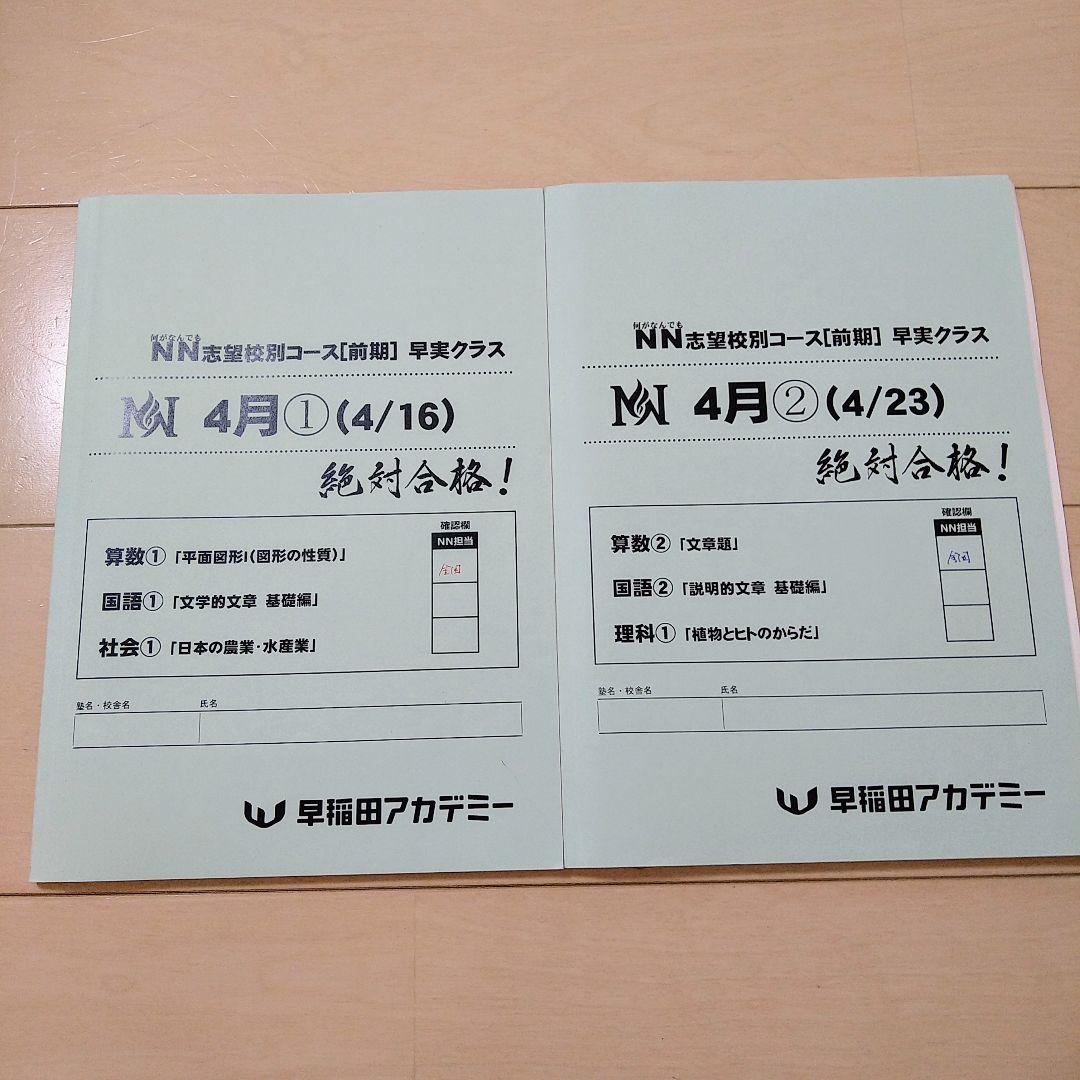 何がなんでも
NN志望校別コース[前期] 早実クラス
NN 4月①(4/16)
絶対合格!
確認欄
NN担当
算数①「平面図形Ⅰ(図形の性質)」
国語①「文学的文章 基礎編」
社会①「日本の農業・水産業」
塾名・校舎名 氏名
早稲田アカデミー
何がなんでも
NN志望校別コース[前期] 早実クラス
NN 4月②(4/23)
絶対合格!
確認欄
NN担当
算数②「文章題」
国語②「説明的文章 基礎編」
理科①「植物とヒトのからだ」
塾名・校舎名 氏名
早稲田アカデミー